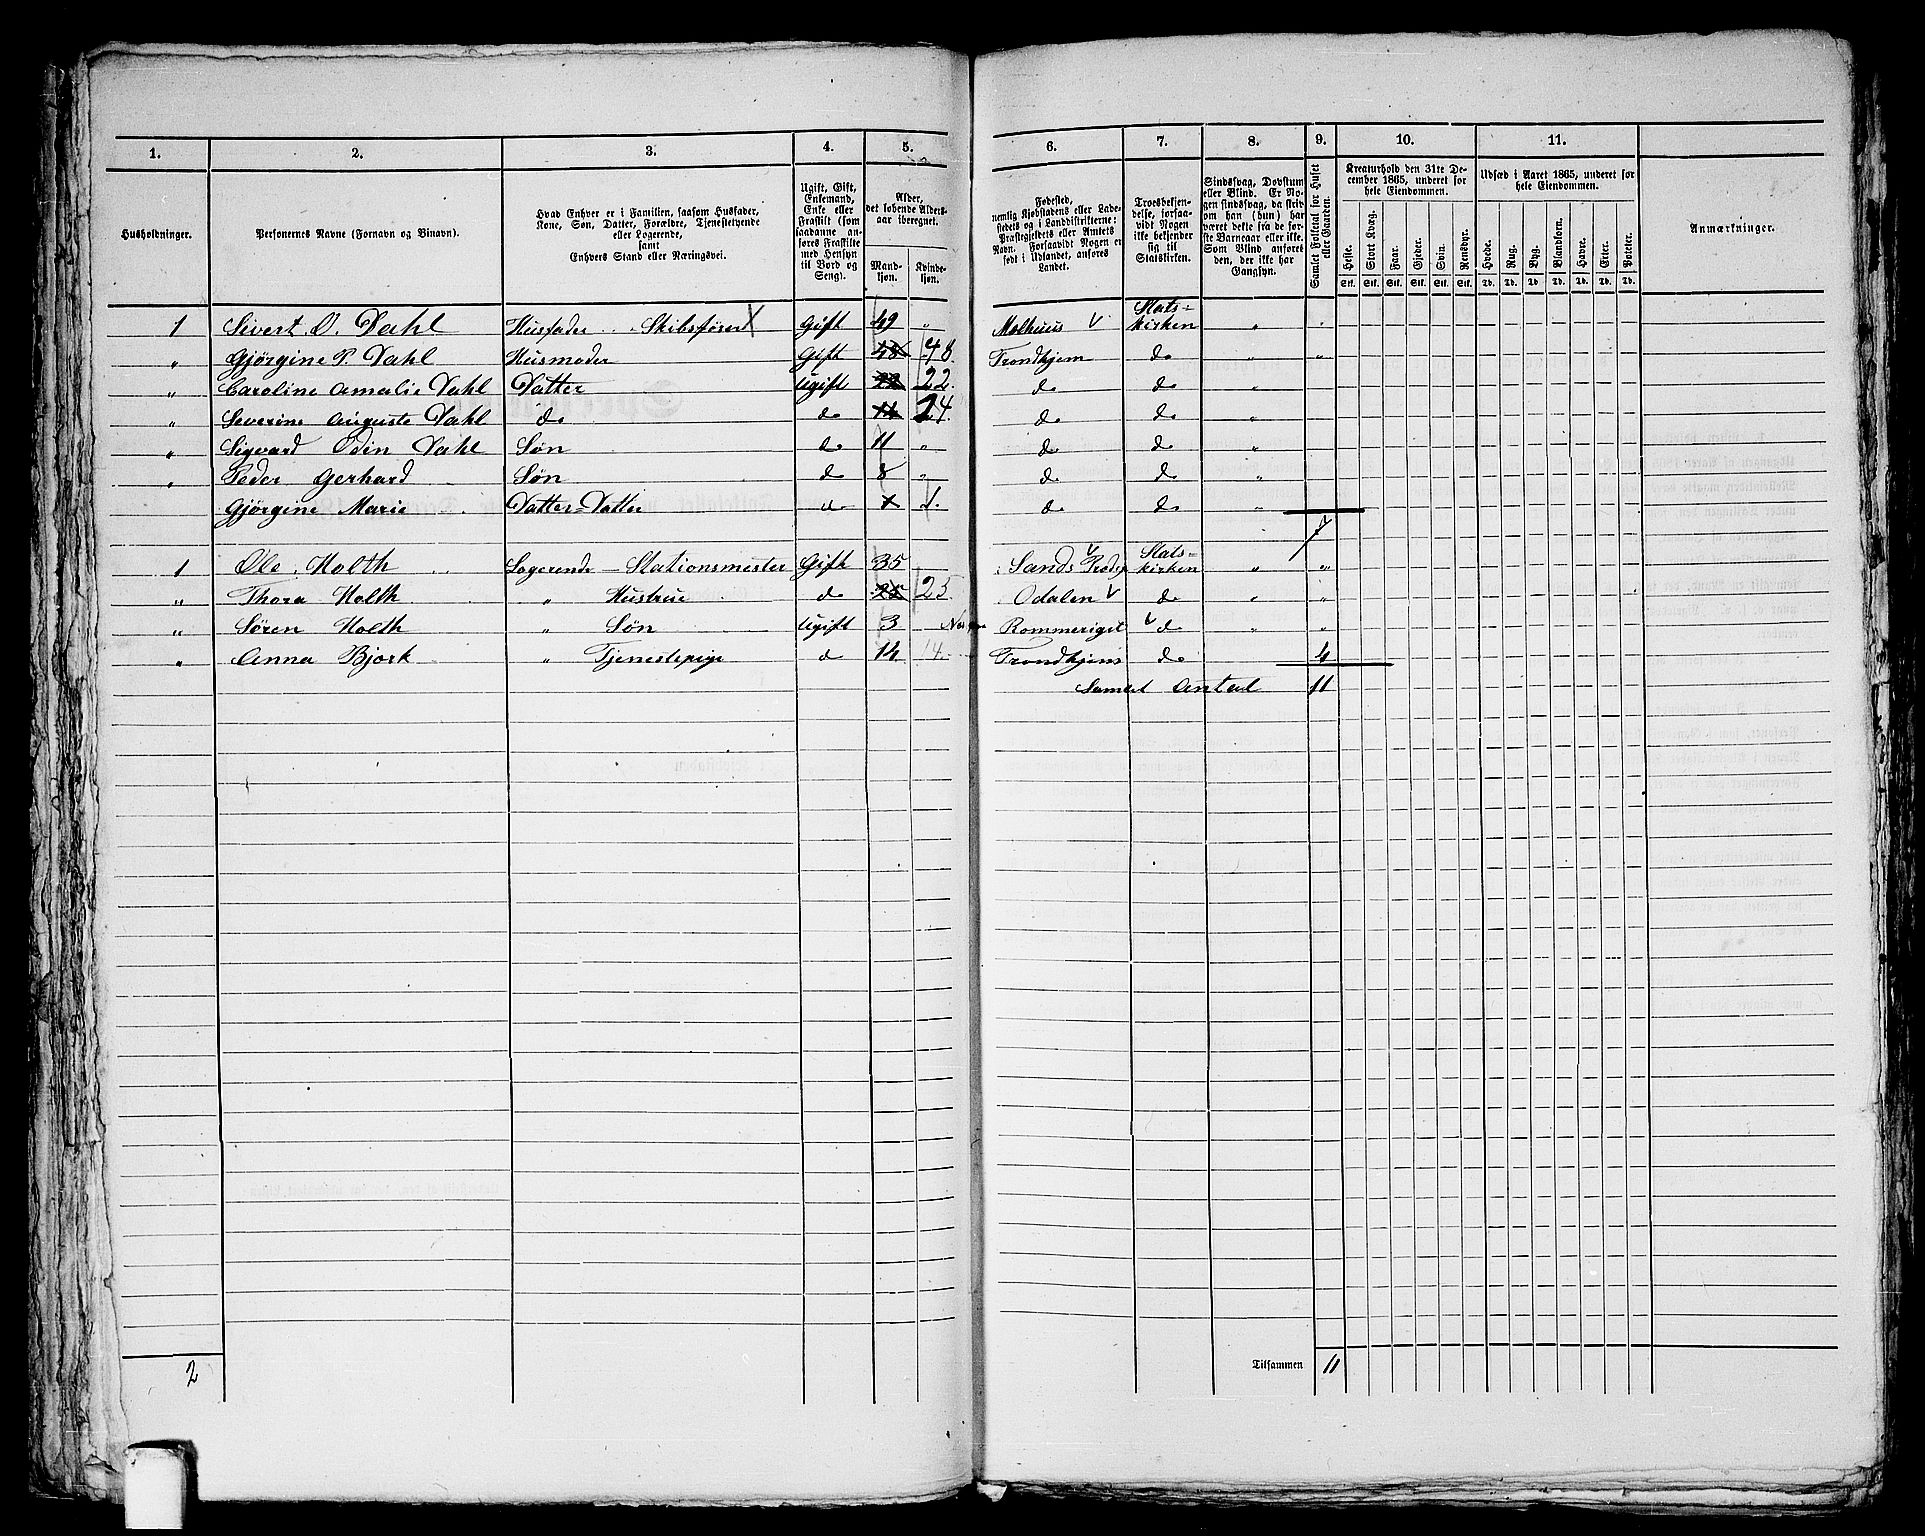 1. 2. 3. 4. 5. 6. 7. 8. 9. 10. 11.
Husholdninger.
Personernes Navne (Fornavn og Binavn).
Hvad Enhver er i Familien, saasom Husfader,
Kone, Søn, Datter, Forældre, Tjenestetyende
eller Logerende,
samt
Enhvers Stand eller Næringsvei.
Ugift, Gift,
Enkemand,
Enke eller
Fraskilt (som
saadanne an-
føres Fraskilte
med Hensyn
til Bord og
Seng).
Alder,
det løbende Alders-
aar iberegnet.
Mand-
kjøn.
Kvinde-
kjøn.
Fødested,
nemlig Kjøbstadens eller Lade-
stedets og i Landdistrikterne:
Præstegjeldets eller Amtets
Navn. Forsaavidt Nogen er
født i Udlandet, anføres
Landet.
Troesbekjen-
delse, forsaa-
vidt Nogen
ikke bekjender
sig til
Statskirken.
Sindssvag, Døvstum
eller Blind. Er No-
gen sindssvag, da skriv
om han (hun) har
været dette fra de før-
ste Barneaar eller ikke.
Som Blind anføres
den, der ikke har
Gangsyn.
Samlet Folketal for Huset
eller Gaarden.
Kreaturhold den 31te De-
cember 1865, underet for
hele Eiendommen.
Heste. Stort Kvæg. Faar. Gjeder. Svin. Rensdyr.
Stk. Stk. Stk. Stk. Stk. Stk.
Udsæd i Aaret 1865, underet for
hele Eiendommen.
Hvede. Rug. Byg. Blandkorn. Havre. Erter. Poteter.
Td. Td. Td. Td. Td. Td. Td.
Anmærkninger.
1 Sivert O. Dahl Husfader Skibsfører X Gift 49 " Melhuus V Stats-kirken " "
" Gjørgine P. Dahl Husmoder Gift 48 48. Trondhjem do " "
" Caroline Amalie Dahl Datter Ugift 22 22. do do "
" Severine Auguste Dahl do do 14 do do "
" Sigvard Odin Dahl Søn do 11 " do do "
" Peder Gerhard Søn do 8 " do do "
Gjørgine Marie Datter-Datter do 1 1. do do "
7
1 Ole Holth Logerende - Stationsmester Gift 35 Stats-kirken " "
" Thora Holth " Hustrue do 25 25 Odalen V do " "
" Søren Holth " Søn Ugift 3 Rommeriget V do " "
" Anna Bjork " Tjenestepige do 14 14. Trondhjem do 4
Samlet Antal 11
2
Tilsammen 11